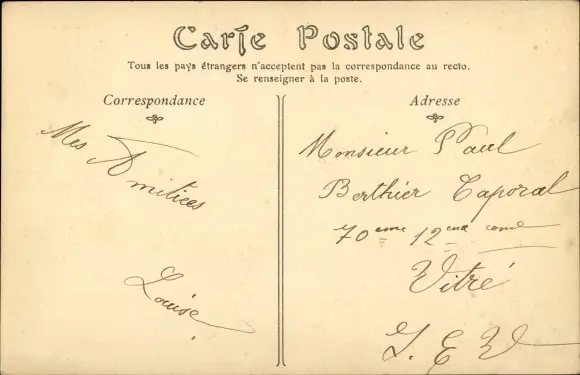 Carte Postale
Tous les pays étrangers n'acceptent pas la correspondance au recto.
Se renseigner à la poste.
Correspondance
Mes Amitiées
Louise.
Adresse
Monsieur Paul
Berthier Caporal
70eme 12eme come
Vitré
I. E V